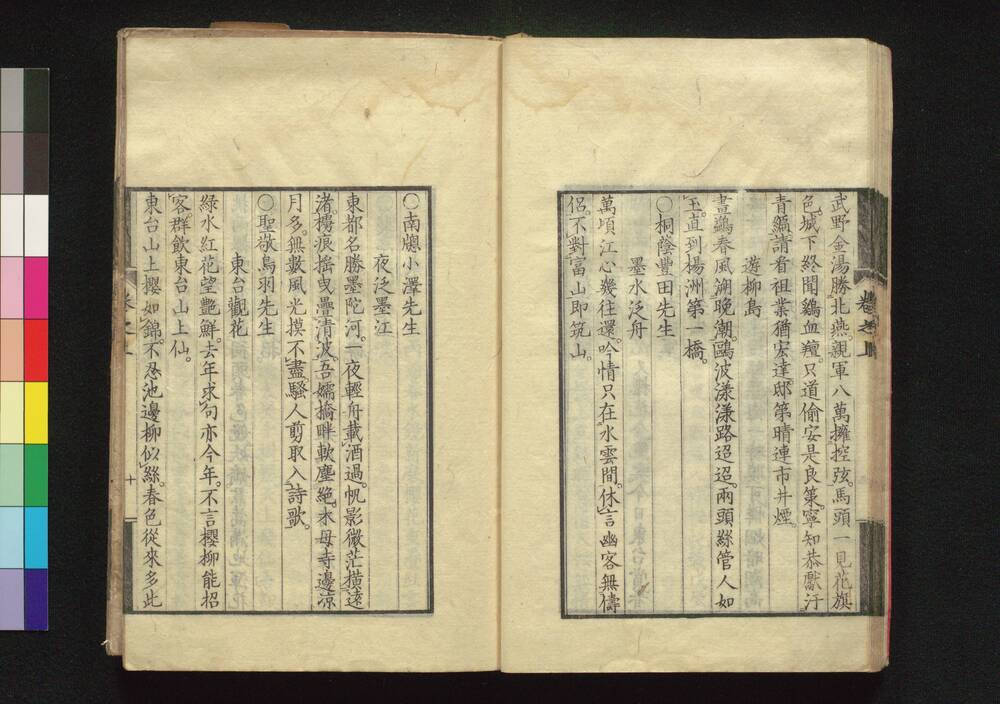 武野金湯勝北燕。親軍八萬擁控弦。馬頭一見花旗
色。城下終聞鷄血羶。只道偷安是良策。寧知恭獻汙
青編。請看祖業猶宏達。邸第晴連市井煙。
遊柳島
畫鷁春風潮晚潮。鷗波漾漾路迢迢。兩頭絲管人如
玉。直到揚洲第一橋。
○桐蔭豐田先生
墨水泛舟
萬頃江心幾往還。吟情只在水雲間。休言幽客無儔
侶。不對富山即筑山。
○南㗊小澤先生
夜泛墨江
東都名勝墨陀河。一夜輕舟載酒過。帆影微茫橫遠
渚。櫓痕搖曳疊清波。吾嬬橋畔軟塵絕。木母寺邊涼
月多。無數風光摸不盡。騷人剪取入詩歌。
○聖敬鳥羽先生
東台觀花
綠水紅花望艷鮮。去年求句亦今年。不言櫻柳能招
客。群飲東台山上仙。
東台山上櫻如錦。不忍池邊柳似絲。春色從來多此
十